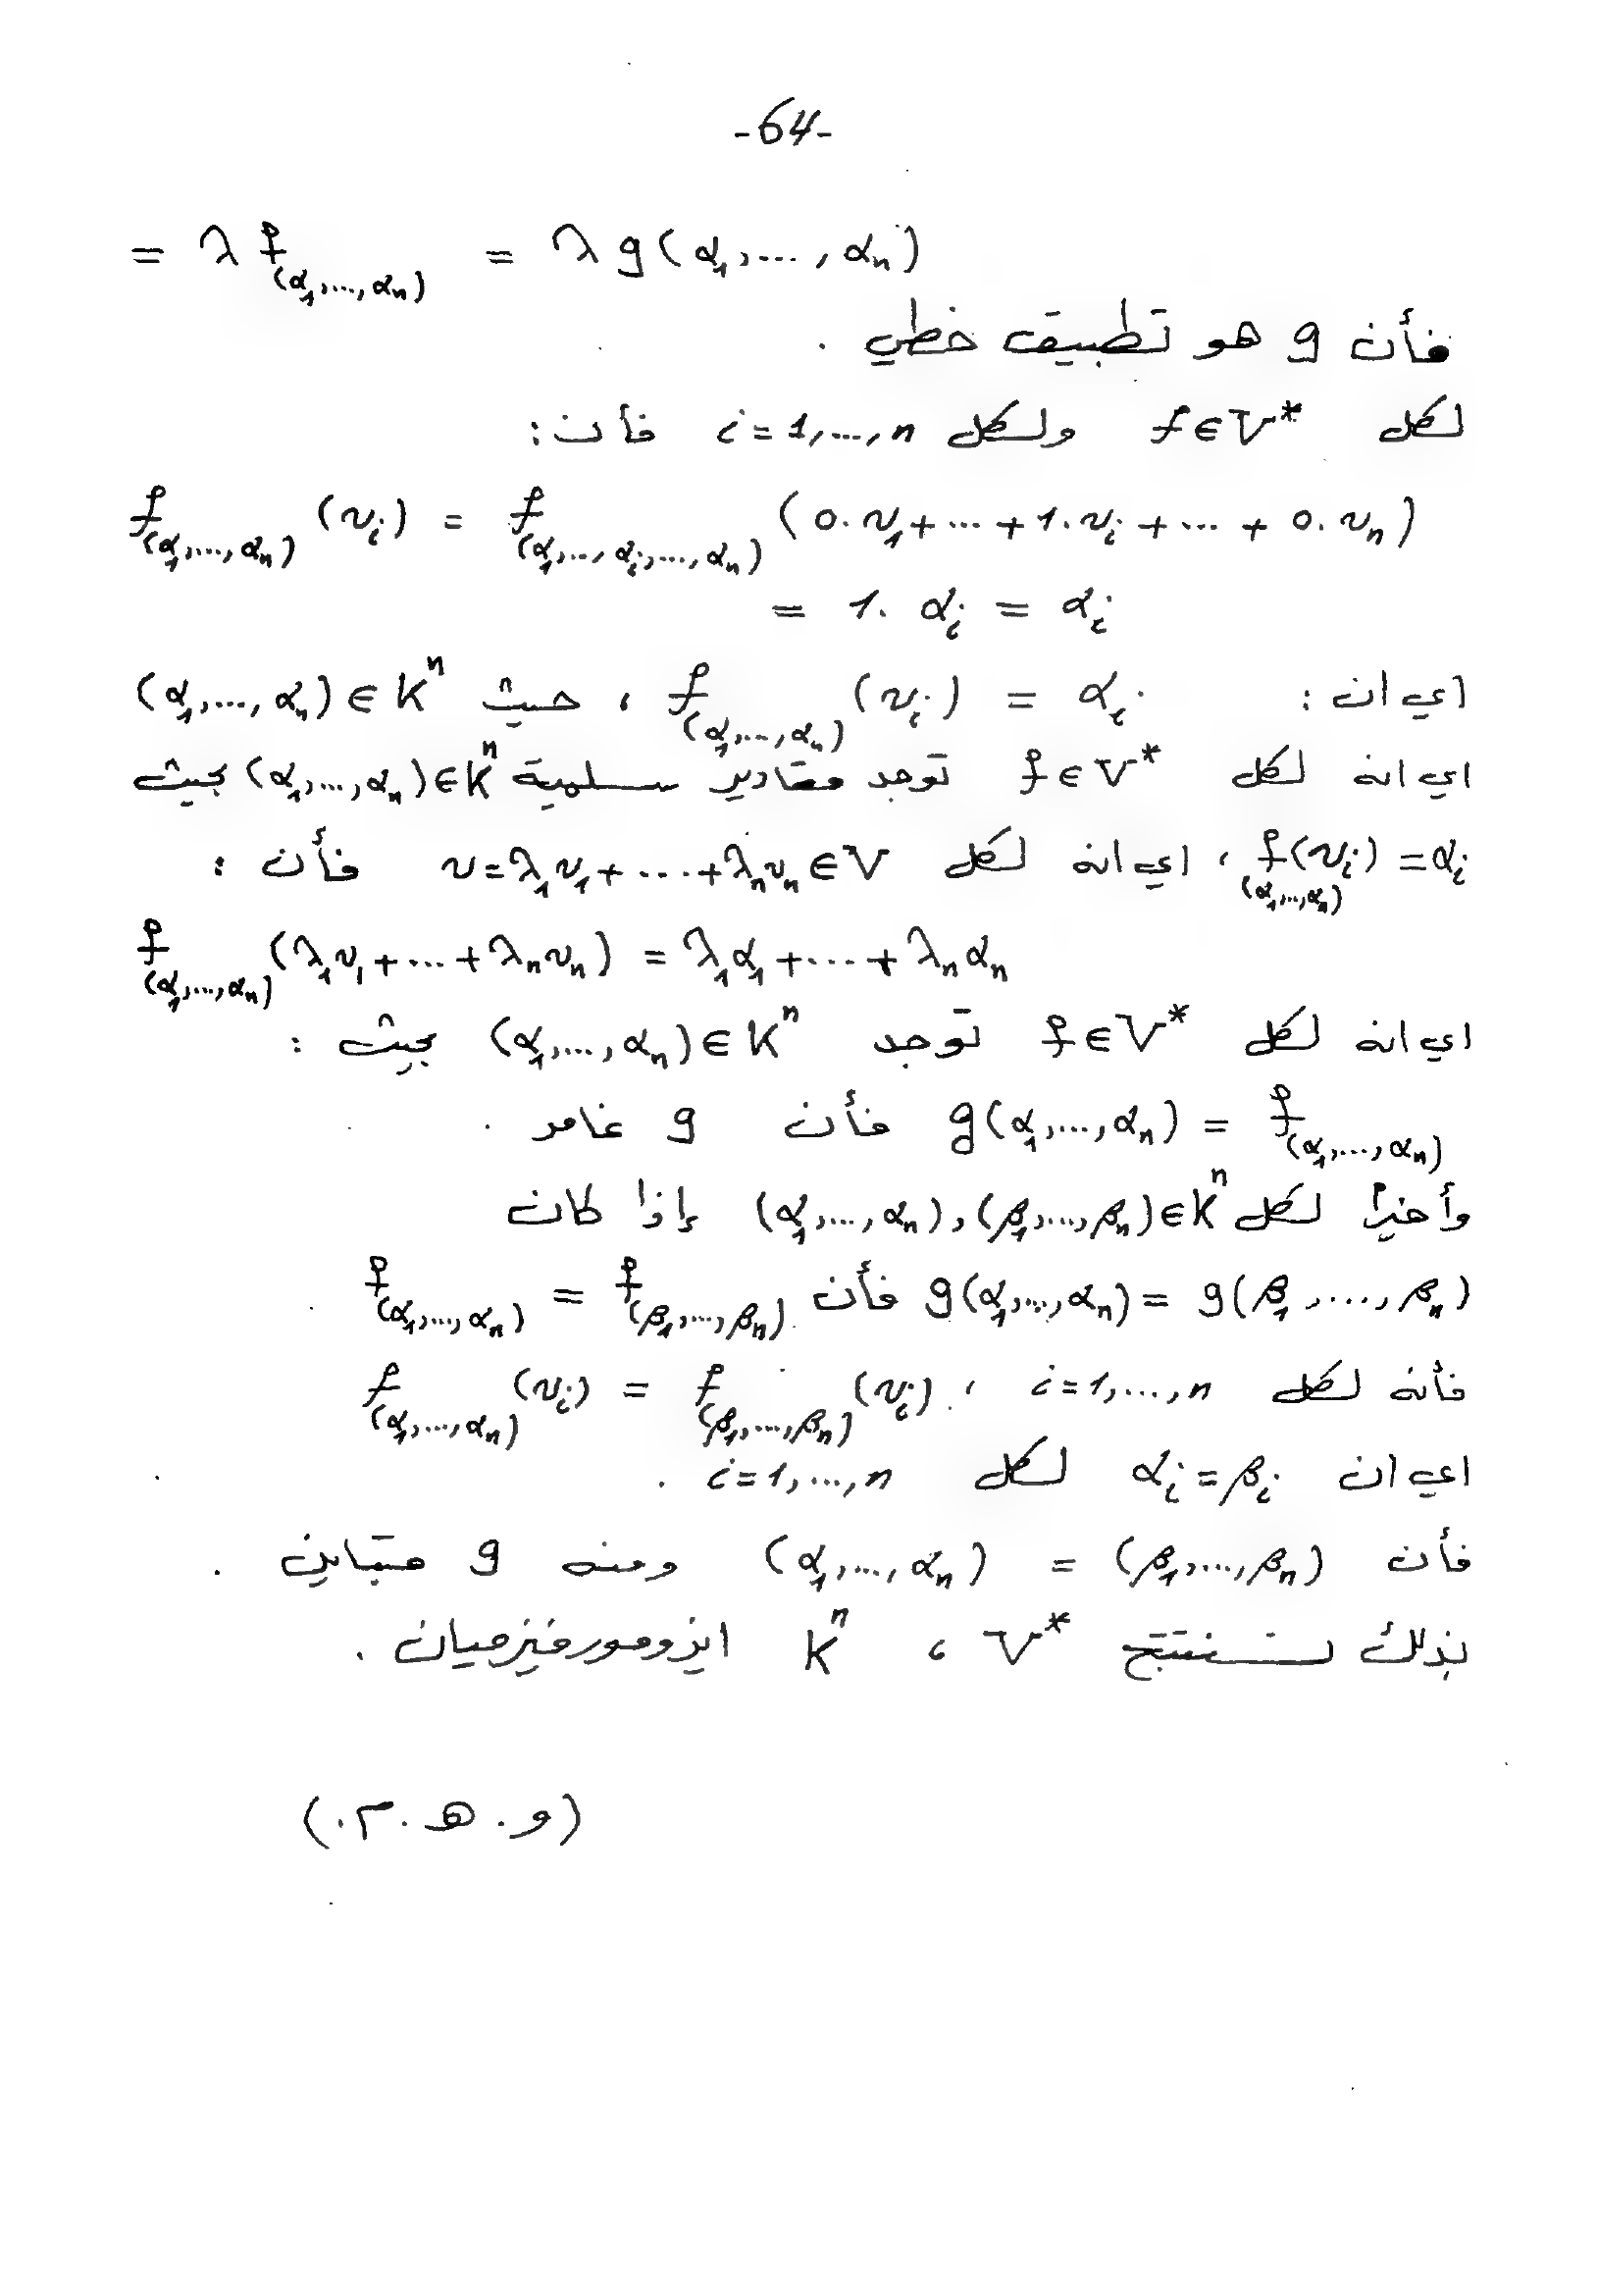 -64-
= λ f_(α₁,...,αₙ) = λ g(α₁,...,αₙ)
فأن g هو تطبيق خطي .
لكل f∈V* ولكل i=1,...,n فأن :
f_(α₁,...,αₙ) (vᵢ) = f_(α₁,...,αᵢ,...,αₙ) (0.v₁+...+1.vᵢ+...+0.vₙ)
= 1. αᵢ = αᵢ
اي ان : f_(α₁,...,αₙ) (vᵢ) = αᵢ ، حيث (α₁,...,αₙ)∈Kⁿ
اي انه لكل f∈V* توجد مقادير سلمية (α₁,...,αₙ)∈Kⁿ بحيث
f_(α₁,...,αₙ)(vᵢ) = αᵢ ، اي انه لكل v=λ₁v₁+...+λₙvₙ∈V فأن :
f_(α₁,...,αₙ) (λ₁v₁+...+λₙvₙ) = λ₁α₁+...+λₙαₙ
اي انه لكل f∈V* توجد (α₁,...,αₙ)∈Kⁿ بحيث :
g(α₁,...,αₙ) = f_(α₁,...,αₙ) فأن g غامر .
وأخيراً لكل (α₁,...,αₙ),(β₁,...,βₙ)∈Kⁿ إذا كان
g(α₁,...,αₙ) = g(β₁,...,βₙ) فأن f_(α₁,...,αₙ) = f_(β₁,...,βₙ)
فأنه لكل i=1,...,n ، f_(α₁,...,αₙ)(vᵢ) = f_(β₁,...,βₙ)(vᵢ)
اي ان αᵢ=βᵢ لكل i=1,...,n .
فأن (α₁,...,αₙ) = (β₁,...,βₙ) ومنه g متباين .
بذلك نستنتج V* ، Kⁿ ايزومورفيزميان .
(و . ه . م .)